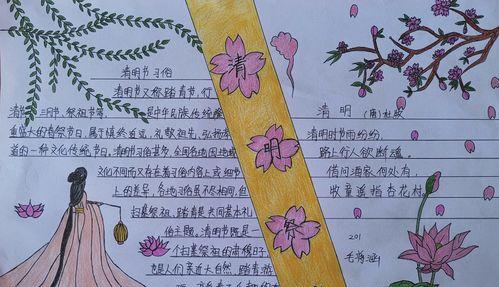 清明节习俗
清明节又称踏青节、行
清 三月节、祭祖节等, 是中华民族传统
重盛大的春祭节日,属于慎终追远、礼敬祖先、弘扬孝
道的一种文化传统节日。清明节习俗甚多,全国各地因地域
文化不同而又存在着习俗内容上或细节
上的差异,各地习俗虽不尽相同,但
扫墓祭祖、踏青是共同基本礼
俗主题。清明节既是一
个扫墓祭祖的肃穆日子
也是人们亲近大自然、踏青游
清
明
祭
清明 (唐)杜牧
清明时节雨纷纷,
路上行人欲断魂。
借问酒家何处有,
牧童遥指杏花村。
201